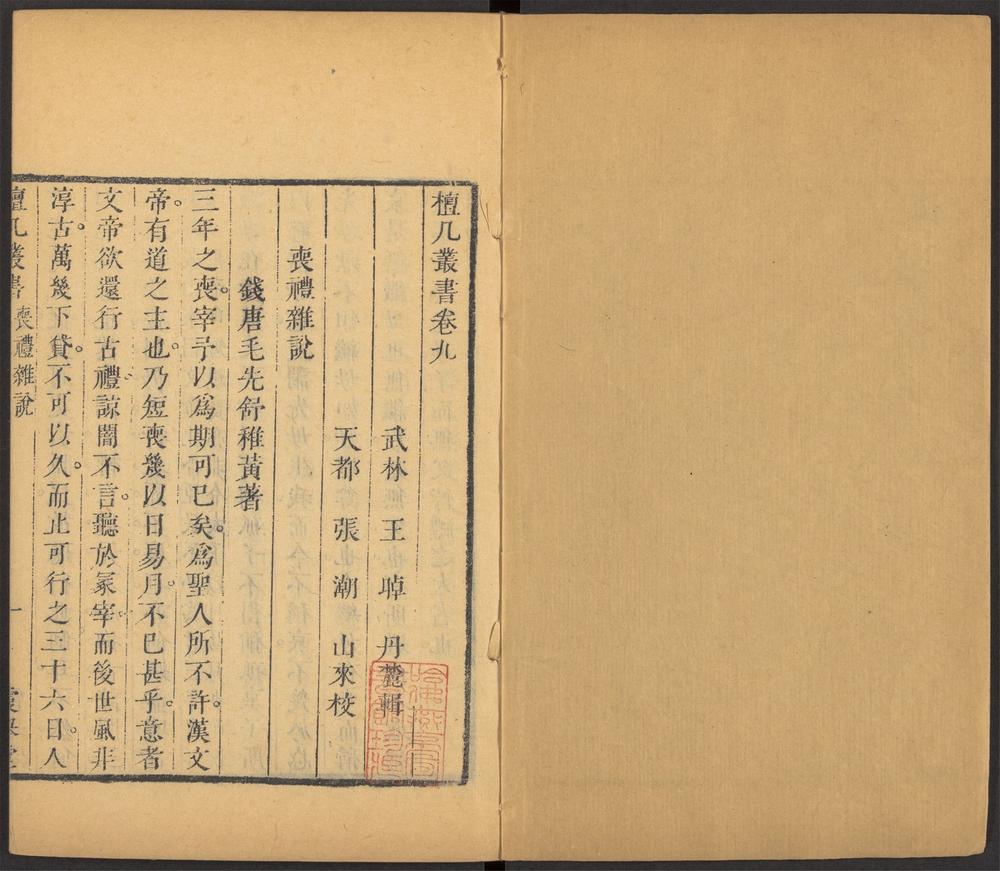 檀几叢書卷九
武林 王晫 丹麓輯
天都 張潮 山來校
喪禮雜說
錢唐毛先舒稚黃著
三年之喪。宰予以爲期可已矣。爲聖人所不許。漢文
帝。有道之主也。乃短喪幾以日易月。不已甚乎。意者
文帝欲還行古禮。諒闇不言。聽於冢宰。而後世風非
淳古。萬幾下貸。不可以久。而止可行之三十六日。人
檀几叢書 喪禮雜說 一 霞舉堂
哈佛燕京圖書館珍藏